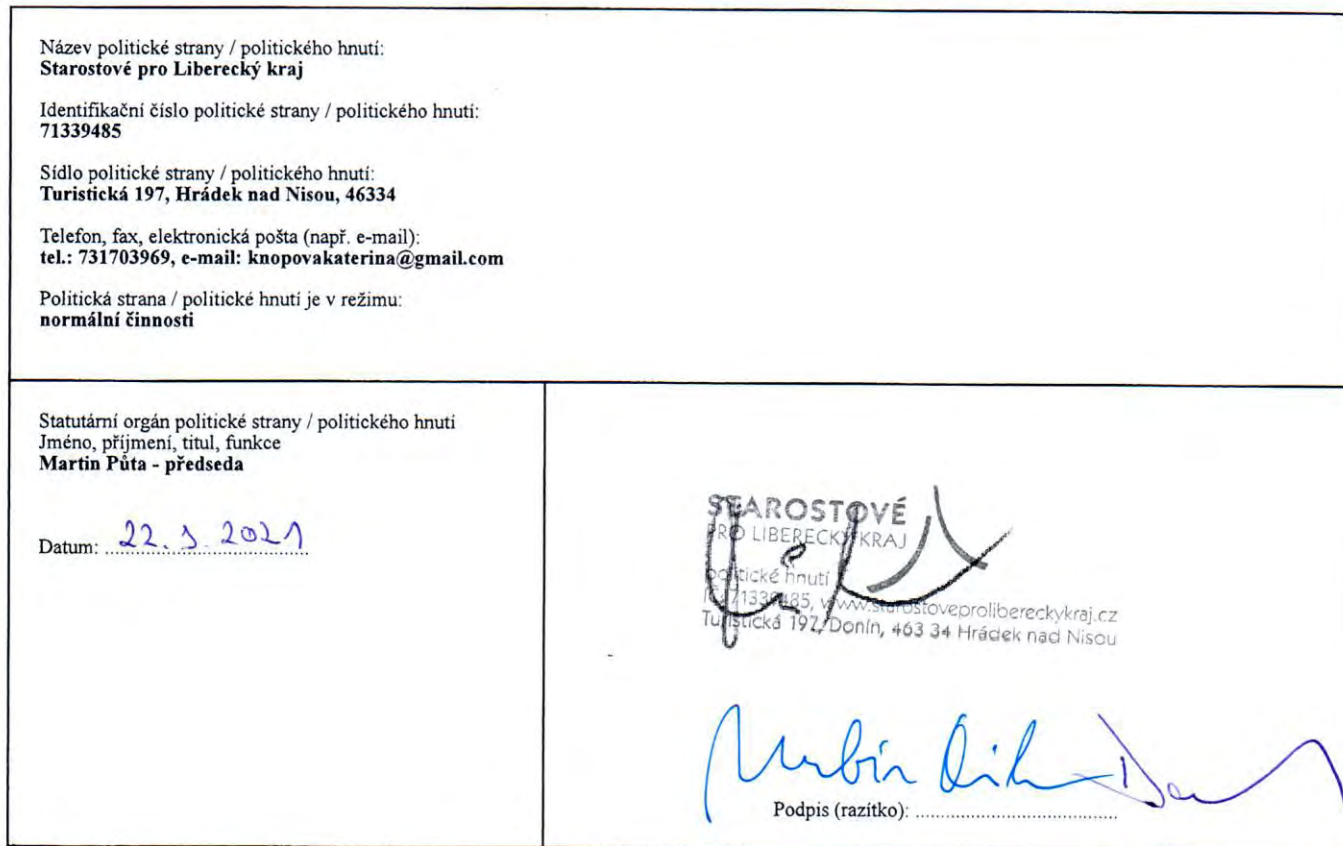 Název politické strany / politického hnutí:
Starostové pro Liberecký kraj
Identifikační číslo politické strany / politického hnutí:
71339485
Sídlo politické strany / politického hnutí:
Turistická 197, Hrádek nad Nisou, 46334
Telefon, fax, elektronická pošta (např. e-mail):
tel.: 731703969, e-mail: knopovakaterina@gmail.com
Politická strana / politické hnutí je v režimu:
normální činnosti
Statutární orgán politické strany / politického hnutí
Jméno, příjmení, titul, funkce
Martin Půta - předseda
Datum: 22. 3. 2021
STAROSTOVÉ
PRO LIBERECKÝ KRAJ
politické hnutí
IČ: 71339485, www.starostoveprolibereckykraj.cz
Turistická 197, Donín, 463 34 Hrádek nad Nisou
Podpis (razítko):